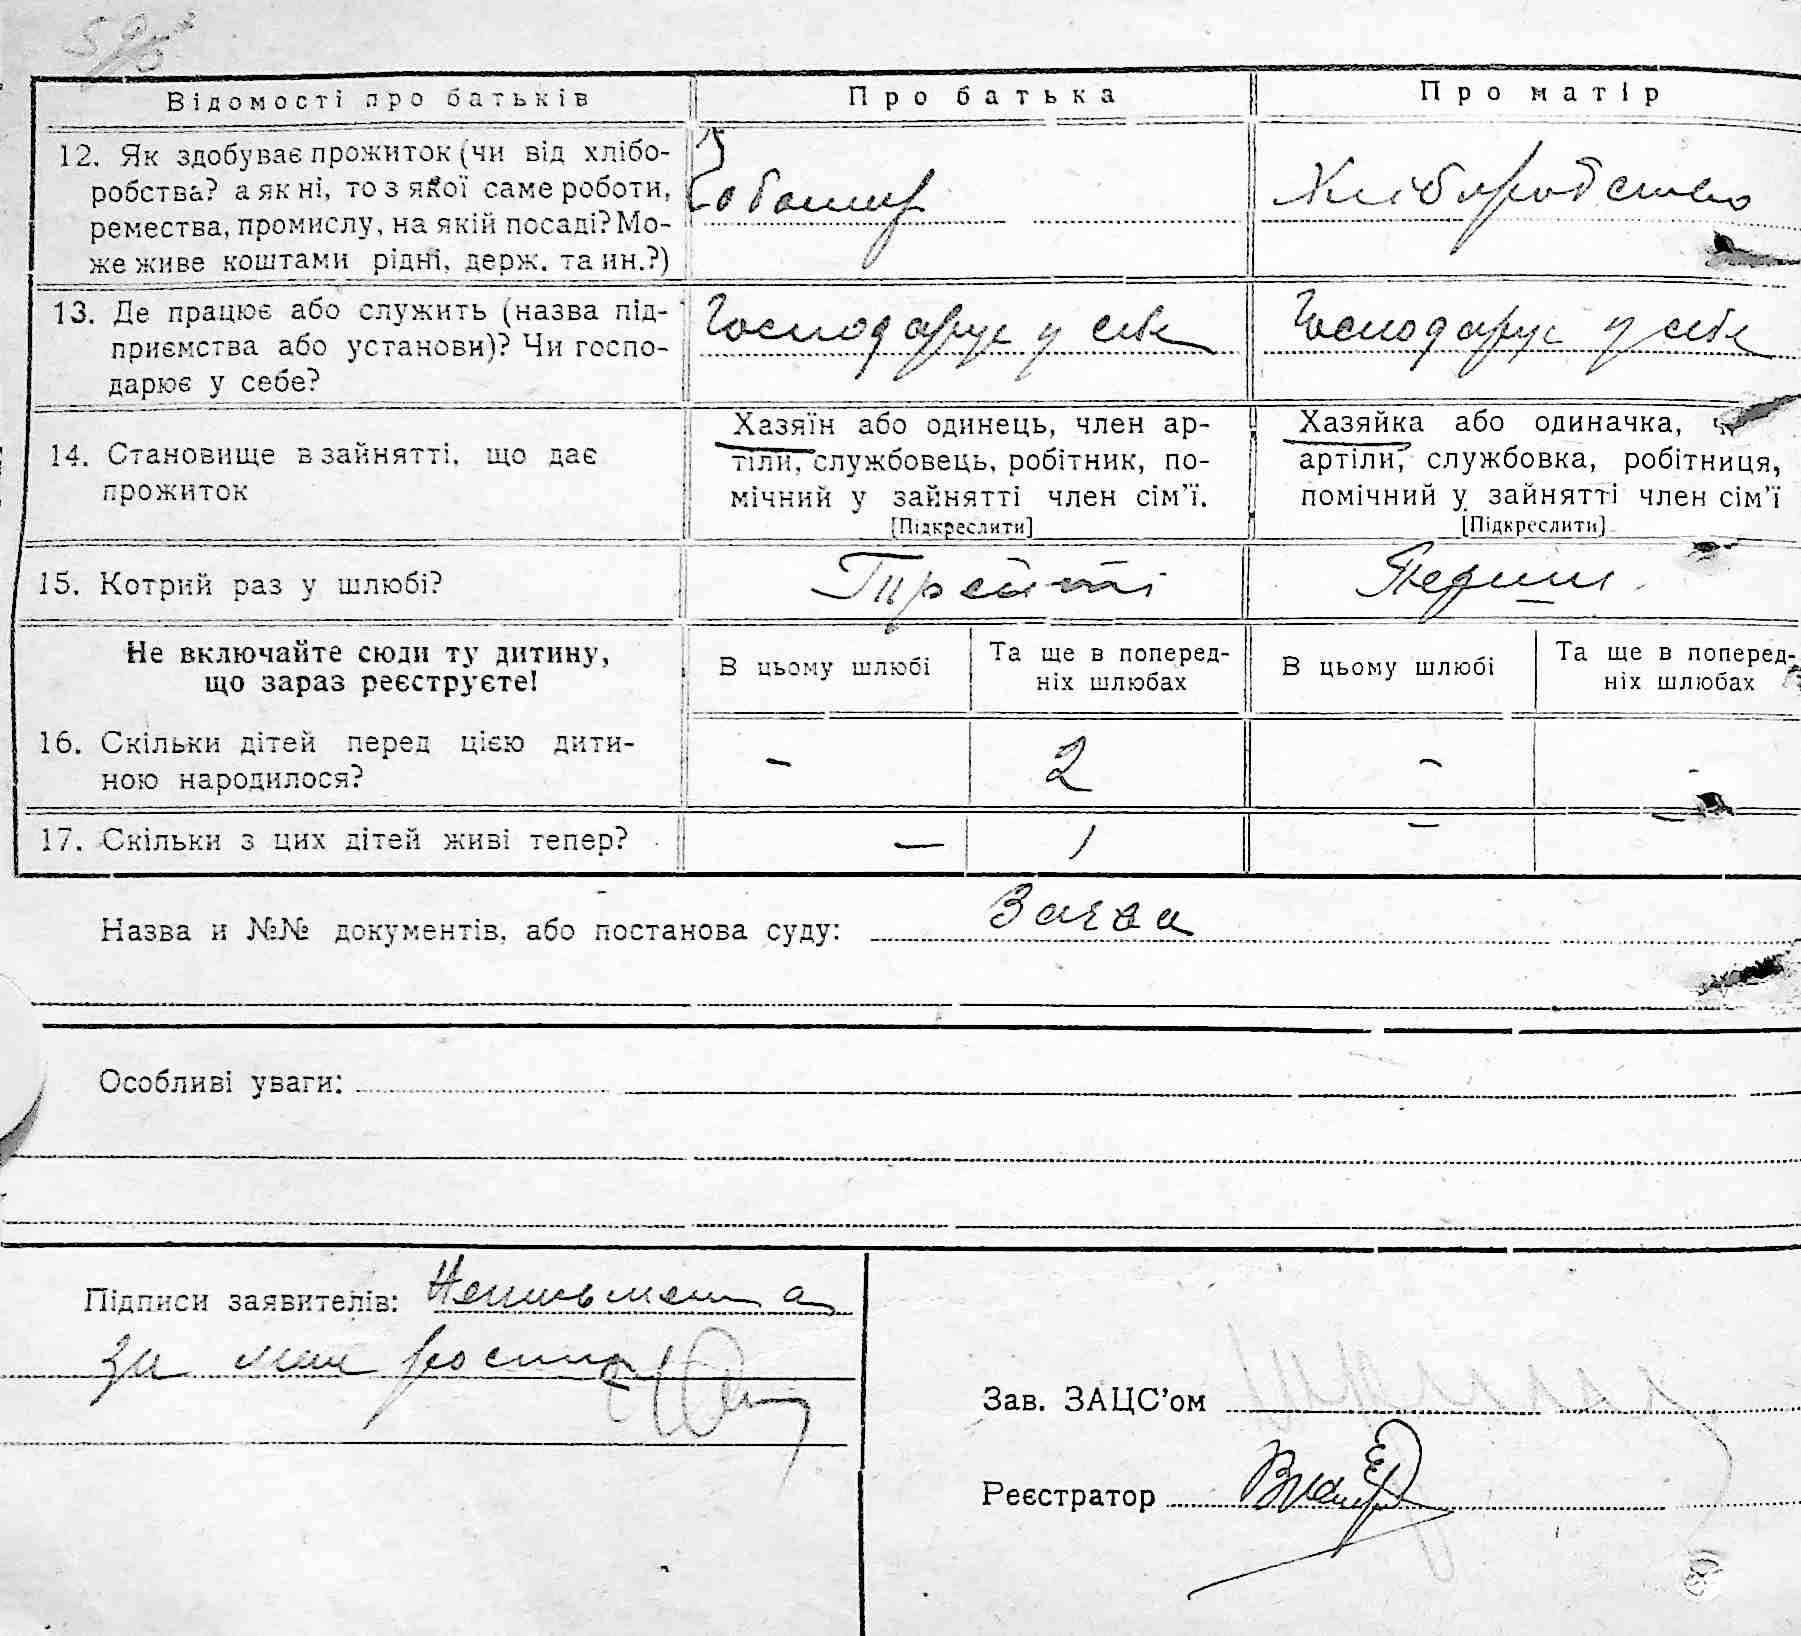 Відомості про батьків
Про батька
Про матір
12. Як здобуває прожиток (чи від хлібо-
робства? а як ні, то з якої саме роботи,
ремества, промислу, на якій посаді? Мо-
же живе коштами рідні, держ. та ин.?)
Хліборобство
13. Де працює або служить (назва під-
приємства або установи)? Чи госпо-
дарює у себе?
Господарує у себе
Господарує у себе
14. Становище в зайнятті, що дає
прожиток
Хазяїн або одинець, член ар-
тіли, службовець, робітник, по-
мічний у зайнятті член сім’ї.
[Підкреслити]
Хазяйка або одиначка,
артіли, службовка, робітниця,
помічний у зайнятті член сім’ї
[Підкреслити]
15. Котрий раз у шлюбі?
Третій
Перший
Не включайте сюди ту дитину,
що зараз реєструєте!
В цьому шлюбі
Та ще в поперед-
ніх шлюбах
В цьому шлюбі
Та ще в поперед-
ніх шлюбах
16. Скільки дітей перед цією дити-
ною народилося?
- 2 - -
17. Скільки з цих дітей живі тепер?
— 1 — —
Назва и №№ документів, або постанова суду: Заява
Особливі уваги:
Підписи заявителів: Неписьменна
за неї
Зав. ЗАЦС’ом
Реєстратор